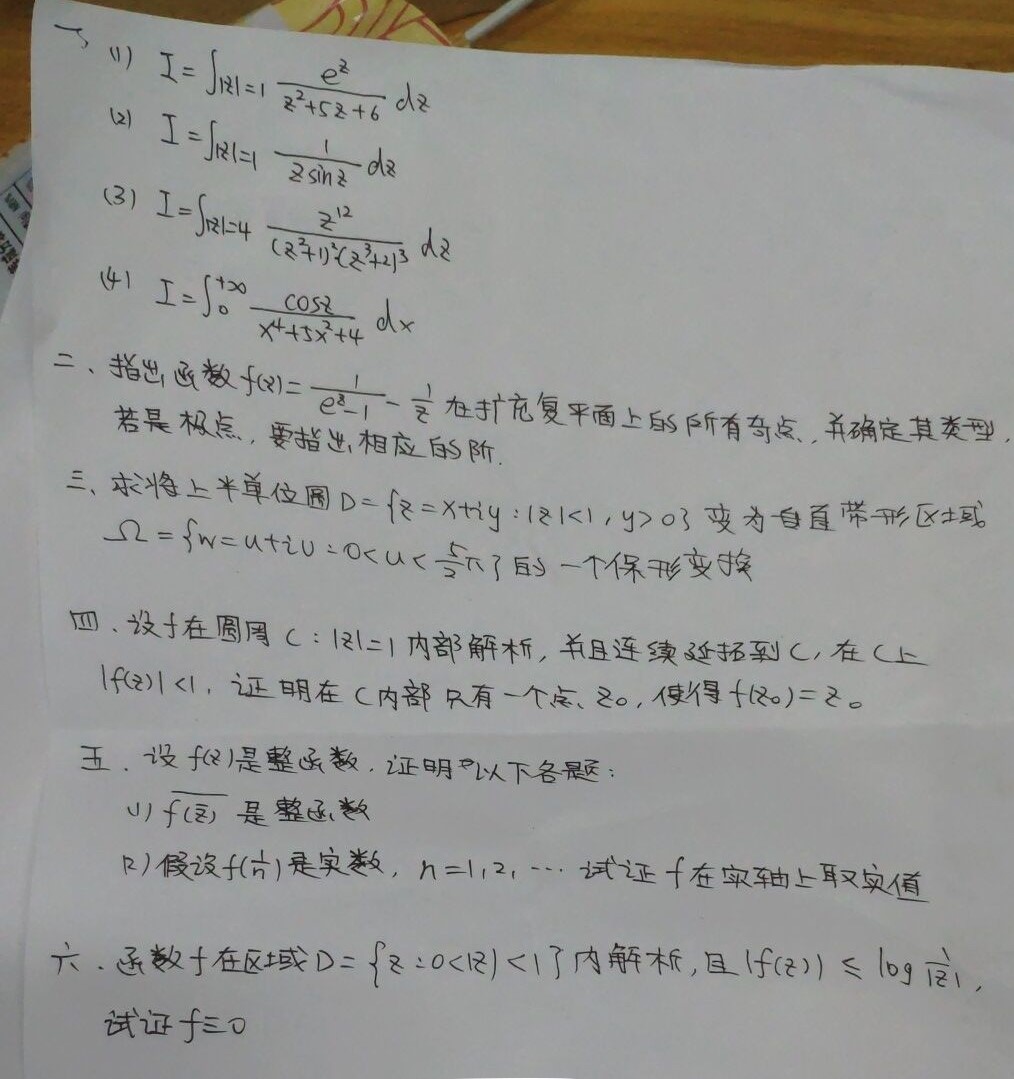 一、(1) I=∫|z|=1 e^z/(z²+5z+6) dz
(2) I=∫|z|=1 1/(z sin z) dz
(3) I=∫|z|=4 z^12/((z²+1)²(z³+2)³) dz
(4) I=∫0^+∞ cosz/(x⁴+5x²+4) dx
二、指出函数f(z)=1/(e^z-1) - 1/z 在扩充复平面上的所有奇点,并确定其类型,
若是极点,要指出相应的阶.
三、求将上半单位圆D={z=x+iy:|z|<1,y>0}变为垂直带形区域
Ω={w=u+iv:0<u<5/2π}的一个保形变换
四.设f在圆周C:|z|=1内部解析,并且连续延拓到C,在C上
|f(z)|<1.证明在C内部只有一个点z₀,使得f(z₀)=z₀
五.设f(z)是整函数.证明以下各题:
(1) \overline{f(\bar{z})} 是整函数
(2)假设f(1/n)是实数,n=1,2,…试证f在实轴上取实值
六.函数f在区域D={z:0<|z|<1}内解析,且|f(z)|≤log 1/|z|,
试证f≡0